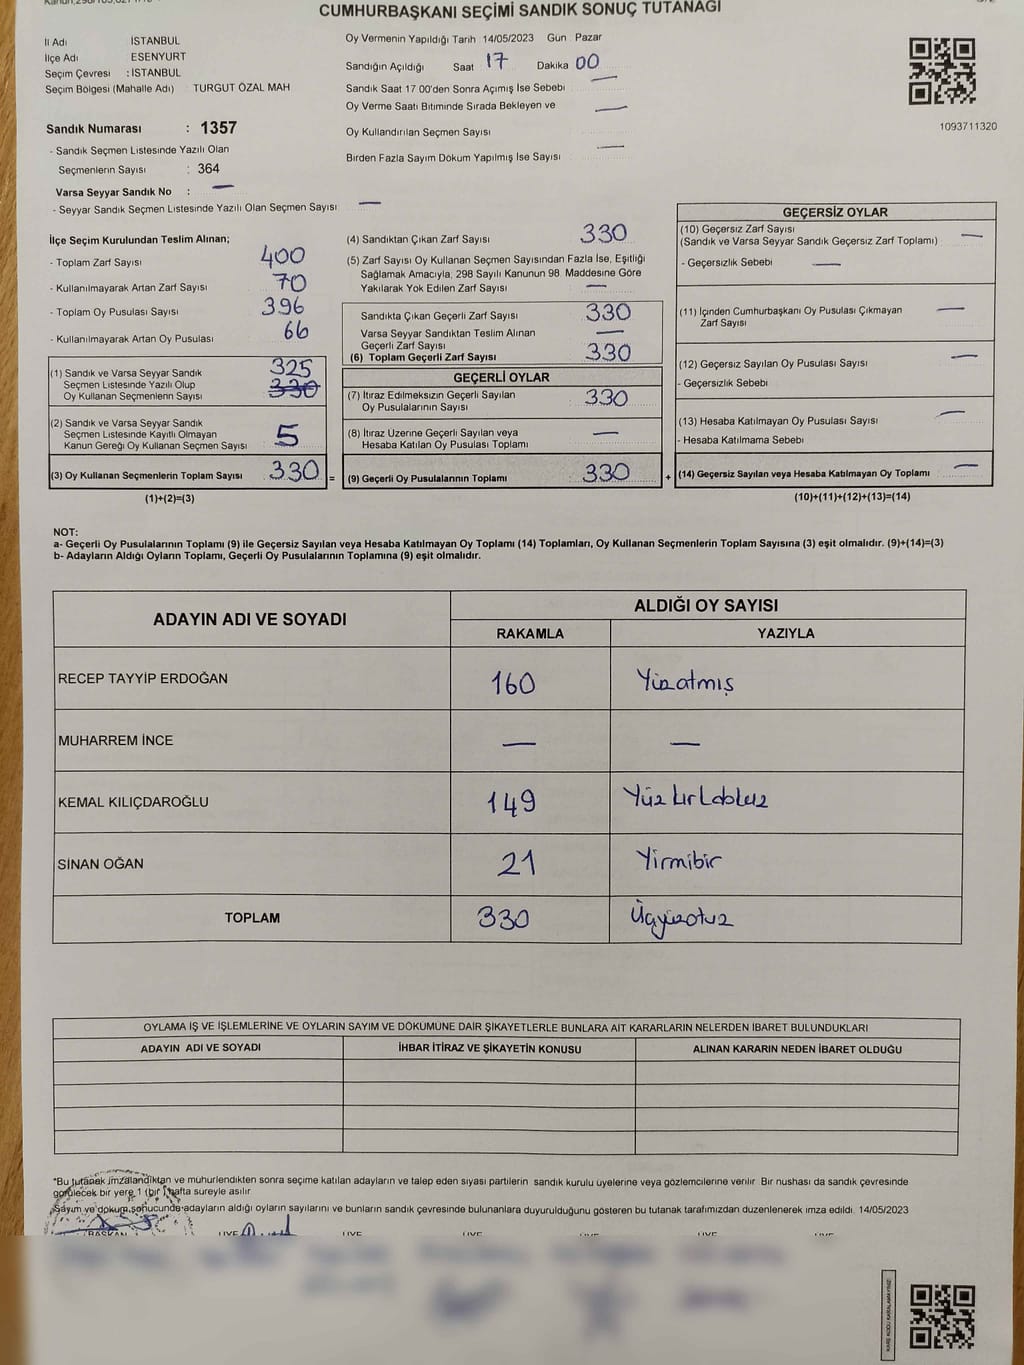 CUMHURBAŞKANI SEÇİMİ SANDIK SONUÇ TUTANAĞI
İl Adı İSTANBUL
İlçe Adı ESENYURT
Seçim Çevresi : İSTANBUL
Seçim Bölgesi (Mahalle Adı) TURGUT ÖZAL MAH
Sandık Numarası : 1357
- Sandık Seçmen Listesinde Yazılı Olan
Seçmenlerin Sayısı : 364
Varsa Seyyar Sandık No : —
- Seyyar Sandık Seçmen Listesinde Yazılı Olan Seçmen Sayısı —
Oy Vermenin Yapıldığı Tarih 14/05/2023 Gün Pazar
Sandığın Açıldığı Saat 17 Dakika 00
Sandık Saat 17 00'den Sonra Açımış İse Sebebi —
Oy Verme Saati Bitiminde Sırada Bekleyen ve —
Oy Kullandırılan Seçmen Sayısı
Birden Fazla Sayım Döküm Yapılmış İse Sayısı —
1093711320
İlçe Seçim Kurulundan Teslim Alınan;
- Toplam Zarf Sayısı 400
- Kullanılmayarak Artan Zarf Sayısı 70
- Toplam Oy Pusulası Sayısı 396
- Kullanılmayarak Artan Oy Pusulası 66
(1) Sandık ve Varsa Seyyar Sandık 325
Seçmen Listesinde Yazılı Olup 330
Oy Kullanan Seçmenlerin Sayısı
(2) Sandık ve Varsa Seyyar Sandık
Seçmen Listesinde Kayıtlı Olmayan 5
Kanun Gereği Oy Kullanan Seçmen Sayısı
(3) Oy Kullanan Seçmenlerin Toplam Sayısı 330 =
(1)+(2)=(3)
(4) Sandıktan Çıkan Zarf Sayısı 330
(5) Zarf Sayısı Oy Kullanan Seçmen Sayısından Fazla İse, Eşitliği
Sağlamak Amacıyla, 298 Sayılı Kanunun 98. Maddesine Göre
Yakılarak Yok Edilen Zarf Sayısı —
Sandıkta Çıkan Geçerli Zarf Sayısı 330
Varsa Seyyar Sandıktan Teslim Alınan —
Geçerli Zarf Sayısı
(6) Toplam Geçerli Zarf Sayısı 330
GEÇERLİ OYLAR
(7) İtiraz Edilmeksizin Geçerli Sayılan 330
Oy Pusulalarının Sayısı
(8) İtiraz Üzerine Geçerli Sayılan veya —
Hesaba Katılan Oy Pusulası Toplamı
(9) Geçerli Oy Pusulalarının Toplamı 330 +
GEÇERSİZ OYLAR
(10) Geçersiz Zarf Sayısı —
(Sandık ve Varsa Seyyar Sandık Geçersiz Zarf Toplamı)
- Geçersizlik Sebebi —
(11) İçinden Cumhurbaşkanı Oy Pusulası Çıkmayan —
Zarf Sayısı
(12) Geçersiz Sayılan Oy Pusulası Sayısı —
- Geçersizlik Sebebi
(13) Hesaba Katılmayan Oy Pusulası Sayısı —
- Hesaba Katılmama Sebebi
(14) Geçersiz Sayılan veya Hesaba Katılmayan Oy Toplamı —
(10)+(11)+(12)+(13)=(14)
NOT:
a- Geçerli Oy Pusulalarının Toplamı (9) ile Geçersiz Sayılan veya Hesaba Katılmayan Oy Toplamı (14) Toplamları, Oy Kullanan Seçmenlerin Toplam Sayısına (3) eşit olmalıdır. (9)+(14)=(3)
b- Adayların Aldığı Oyların Toplamı, Geçerli Oy Pusulalarının Toplamına (9) eşit olmalıdır.
ADAYIN ADI VE SOYADI ALDIĞI OY SAYISI
RAKAMLA YAZIYLA
RECEP TAYYİP ERDOĞAN 160 Yüzatmış
MUHARREM İNCE — —
KEMAL KILIÇDAROĞLU 149 Yüz kırkdokuz
SİNAN OĞAN 21 Yirmibir
TOPLAM 330 Üçyüzotuz
OYLAMA İŞ VE İŞLEMLERİNE VE OYLARIN SAYIM VE DÖKÜMÜNE DAİR ŞİKAYETLERLE BUNLARA AİT KARARLARIN NELERDEN İBARET BULUNDUKLARI
ADAYIN ADI VE SOYADI İHBAR İTİRAZ VE ŞİKAYETİN KONUSU ALINAN KARARIN NEDEN İBARET OLDUĞU
*Bu tutanak imzalandıktan ve mühürlendikten sonra seçime katılan adayların ve talep eden siyasi partilerin sandık kurulu üyelerine veya gözlemcilerine verilir Bir nüshası da sandık çevresinde
görülecek bir yere 1 (bir) hafta süreyle asılır
Sayım ve döküm sonucunda adayların aldığı oyların sayılarını ve bunların sandık çevresinde bulunanlara duyurulduğunu gösteren bu tutanak tarafımızdan düzenlenerek imza edildi. 14/05/2023
BAŞKAN ÜYE ÜYE ÜYE ÜYE ÜYE ÜYE
KARE KODU KARALAMAYINIZ!